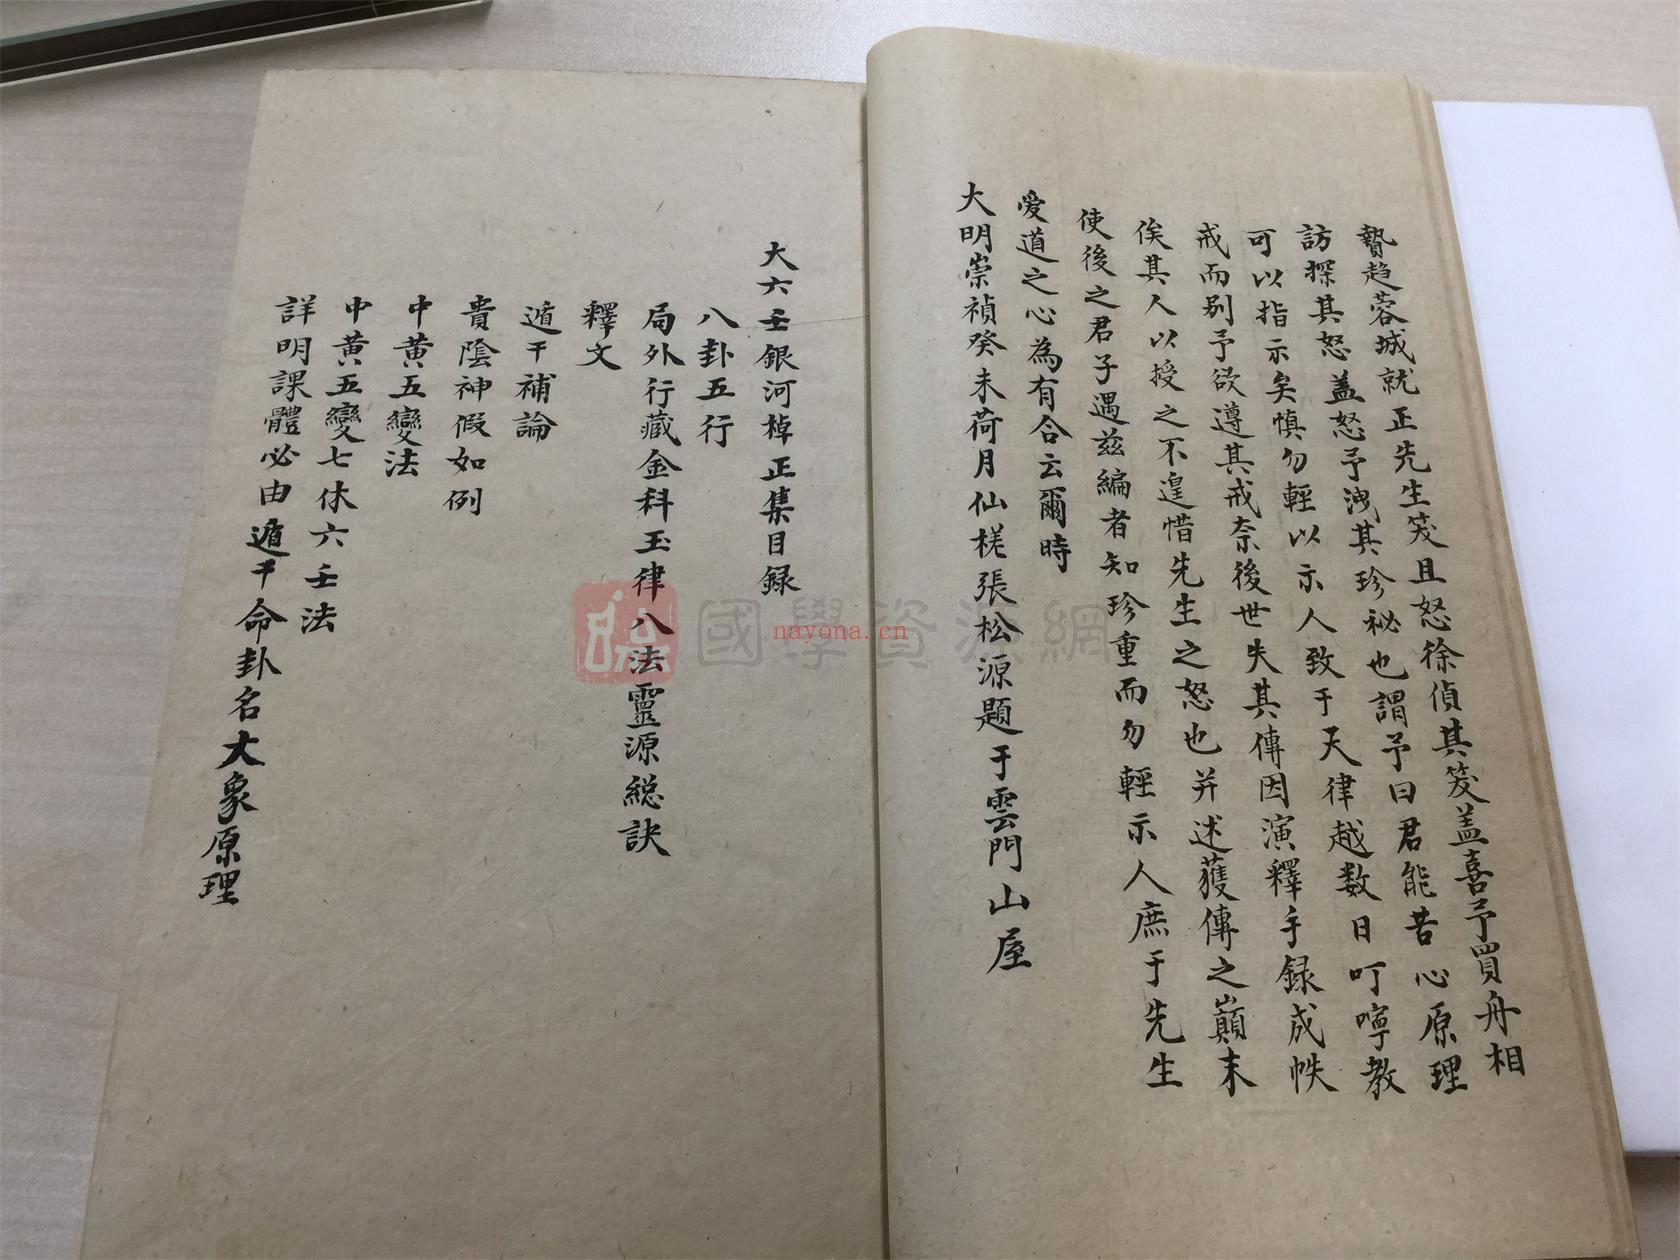 贄趋蓉城就正先生笑且怒徐偵其笑盖喜予買舟相
訪探其怒盖怒予洩其珍秘也謂予曰君能苦心原理
可以指示矣慎勿輕以示人致于天律越数日叮嚀教
戒而别予欲遵其戒奈後世失其傳因演釋手録成帙
俟其人以授之不遑惜先生之怒也并述獲傳之巔末
使後之君子遇兹編者知珍重而勿輕示人庶于先生
愛道之心為有合云爾時
大明崇禎癸未荷月仙槎張松源題于雲門山屋
大六壬銀河棹正集目録
八卦五行
局外行藏金科玉律八法靈源総訣
釋文
遁干補論
貴陰神假如例
中黄五變法
中黄五變七休六壬法
詳明課體必由遁干命卦名大象原理
國學資源網
nayona.cn